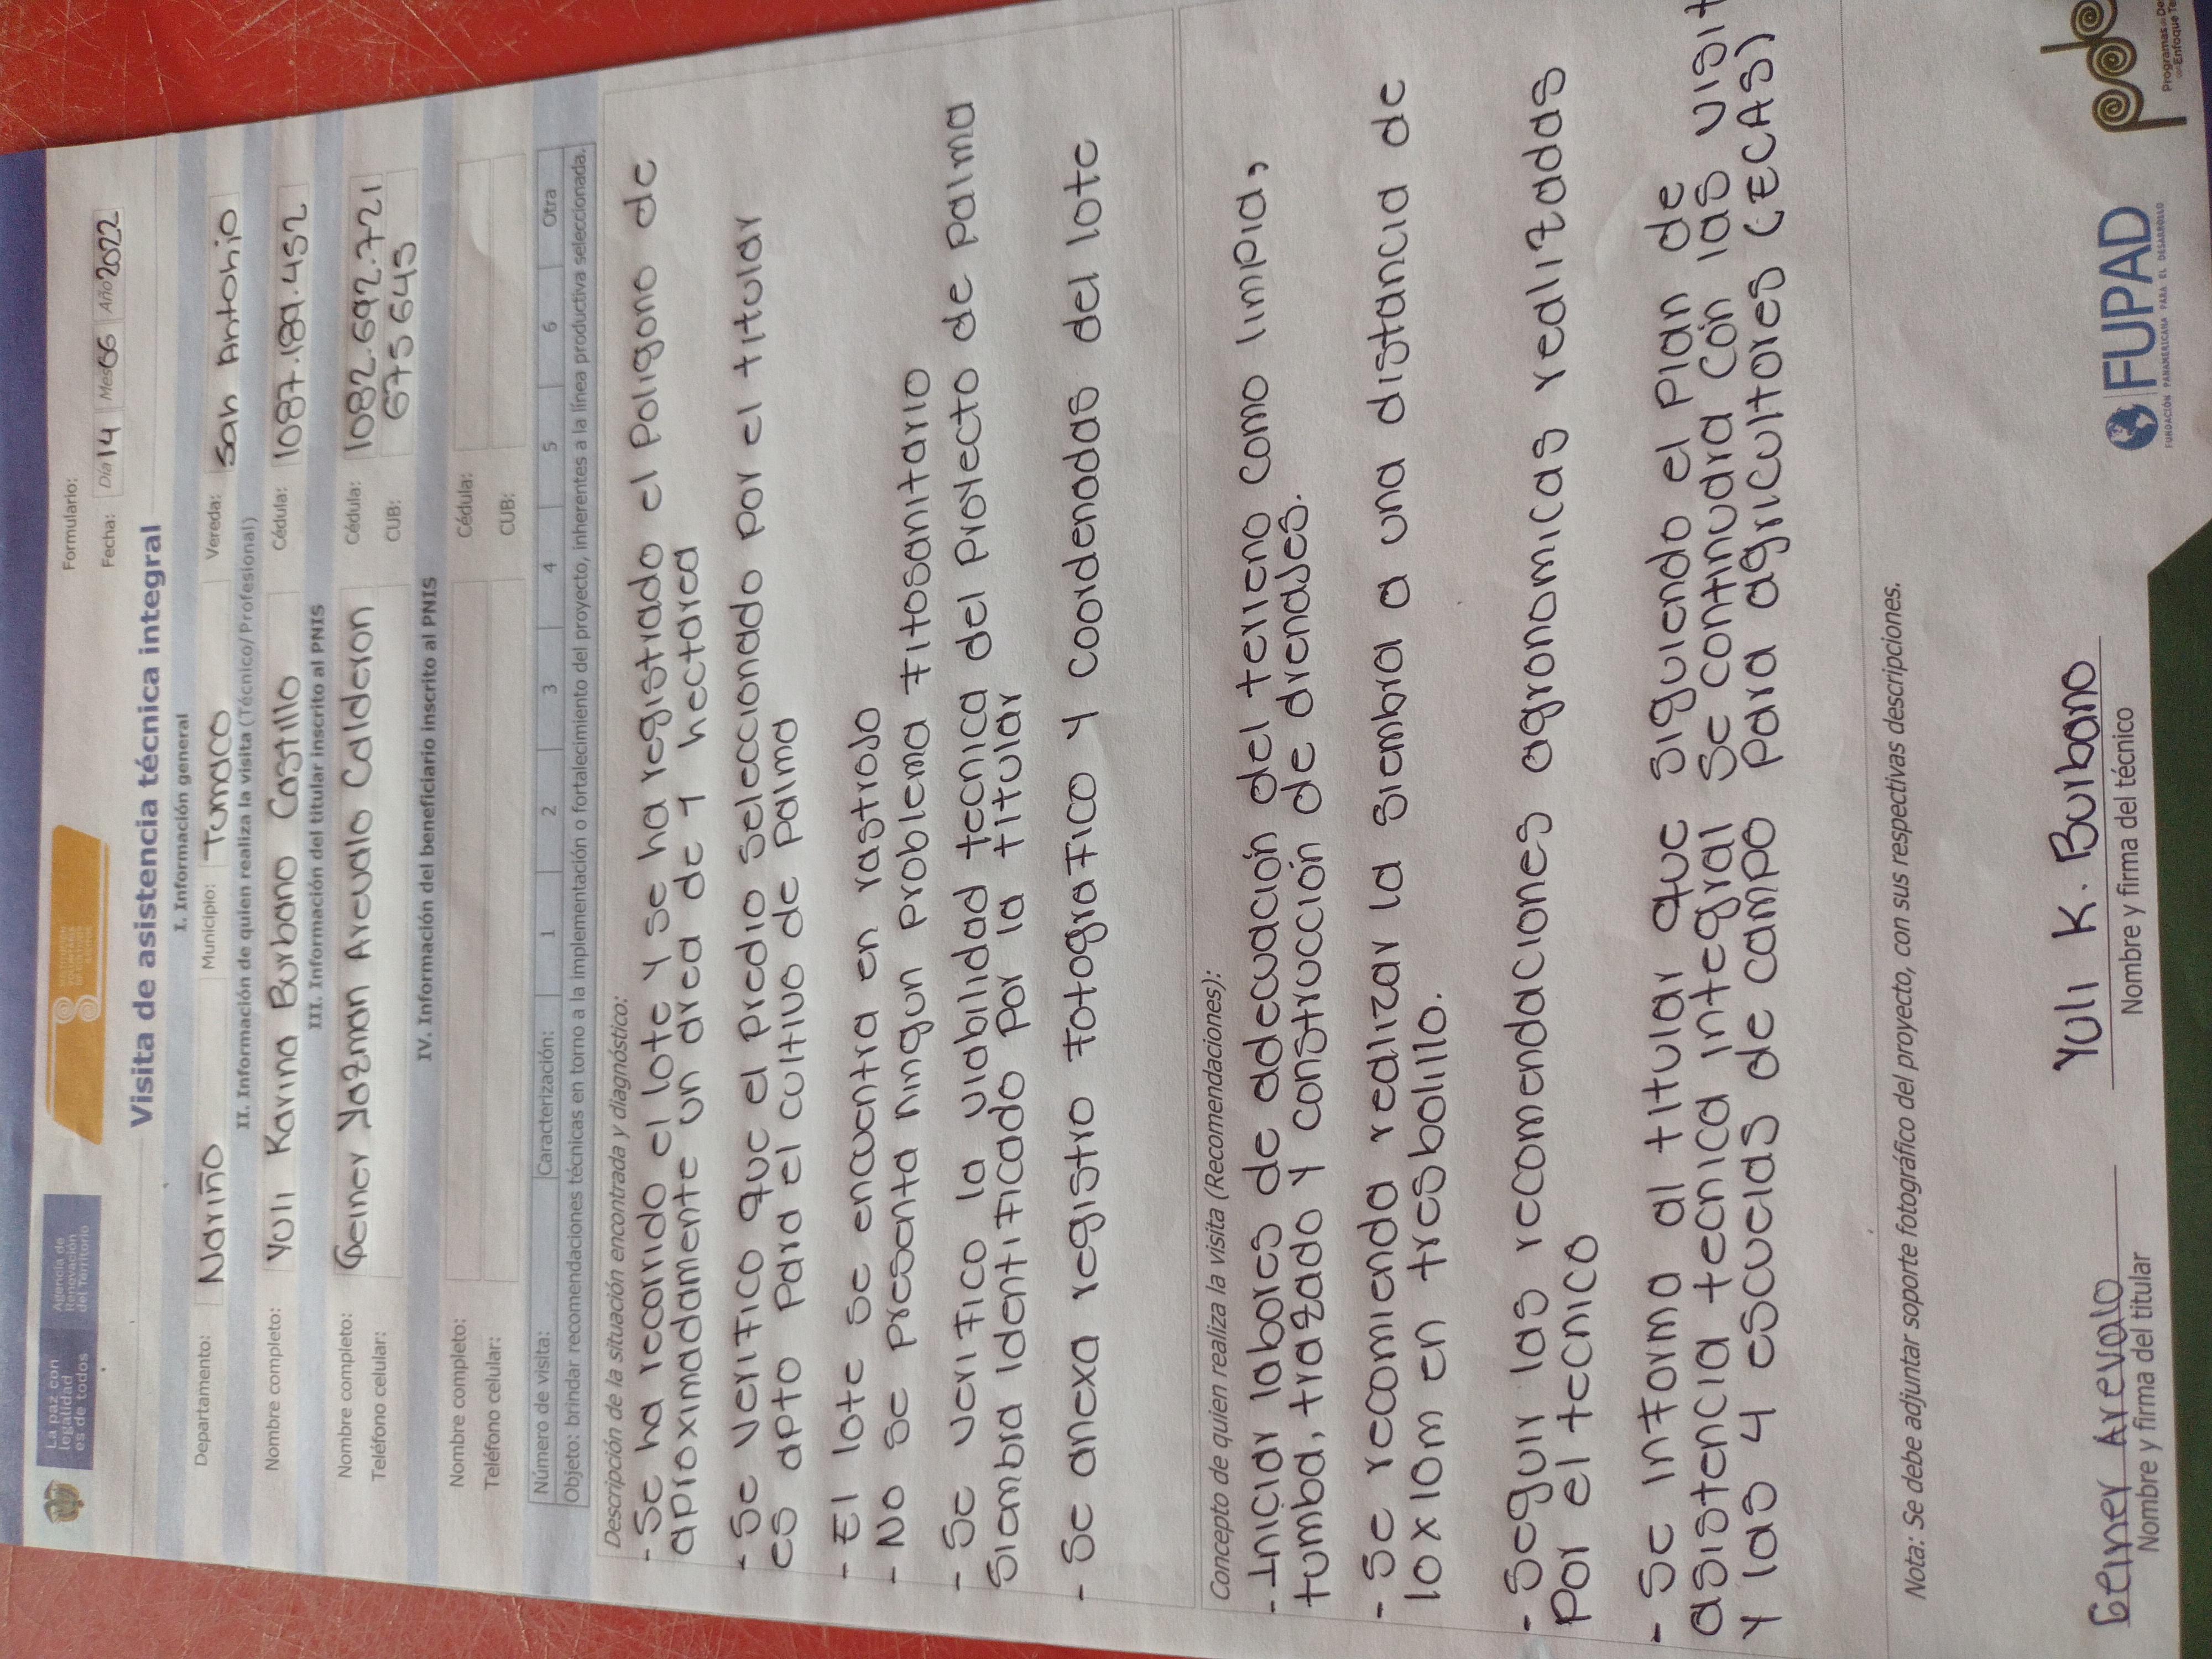 La paz con
legalidad
es de todos
Agencia de
Renovación
del Territorio
Formulario:
Fecha: Día 14 Mes 06 Año 2022
Visita de asistencia técnica integral
I. Información general
Departamento: Nariño Municipio: Tumaco Vereda: San Antonio
II. Información de quien realiza la visita (Técnico/Profesional)
Nombre completo: Yuli Karina Burbano Castillo Cédula: 1087.189.452
III. Información del titular inscrito al PNIS
Nombre completo: Geiner Yazman Arevalo Calderon Cédula: 1082.692.721
Teléfono celular: CUB: 675645
IV. Información del beneficiario inscrito al PNIS
Nombre completo: Cédula:
Teléfono celular: CUB:
Número de visita: Caracterización: 1 2 3 4 5 6 Otra
Objeto: brindar recomendaciones técnicas en torno a la implementación o fortalecimiento del proyecto, inherentes a la línea productiva seleccionada.
Descripción de la situación encontrada y diagnóstico:
- Se ha recorrido el lote y se ha registrado el poligono de
aproximadamente un area de 1 hectarea
- Se verifico que el predio seleccionado por el titular
es apto para el cultivo de palma
- El lote se encuentra en rastrojo
- No se presenta ningun problema fitosanitario
- Se verifico la viabilidad tecnica del proyecto de palma
siembra identificado por la titular
- Se anexa registro fotografico y coordenadas del lote
Concepto de quien realiza la visita (Recomendaciones):
- Iniciar labores de adecuación del terreno como limpia,
tumba, trazado y construcción de drenajes.
- Se recomienda realizar la siembra a una distancia de
10x10m en tresbolillo.
- Seguir las recomendaciones agronomicas realizadas
por el tecnico
- Se informa al titular que siguiendo el plan de
asistencia tecnica integral se continuara con las visit
y las 4 escuelas de campo para agricultores (ECAS)
Nota: Se debe adjuntar soporte fotográfico del proyecto, con sus respectivas descripciones.
Geiner Arevalo
Nombre y firma del titular
Yuli K. Burbano
Nombre y firma del técnico
FUPAD
FUNDACIÓN PANAMERICANA PARA EL DESARROLLO
Programas de De
con Enfoque Te